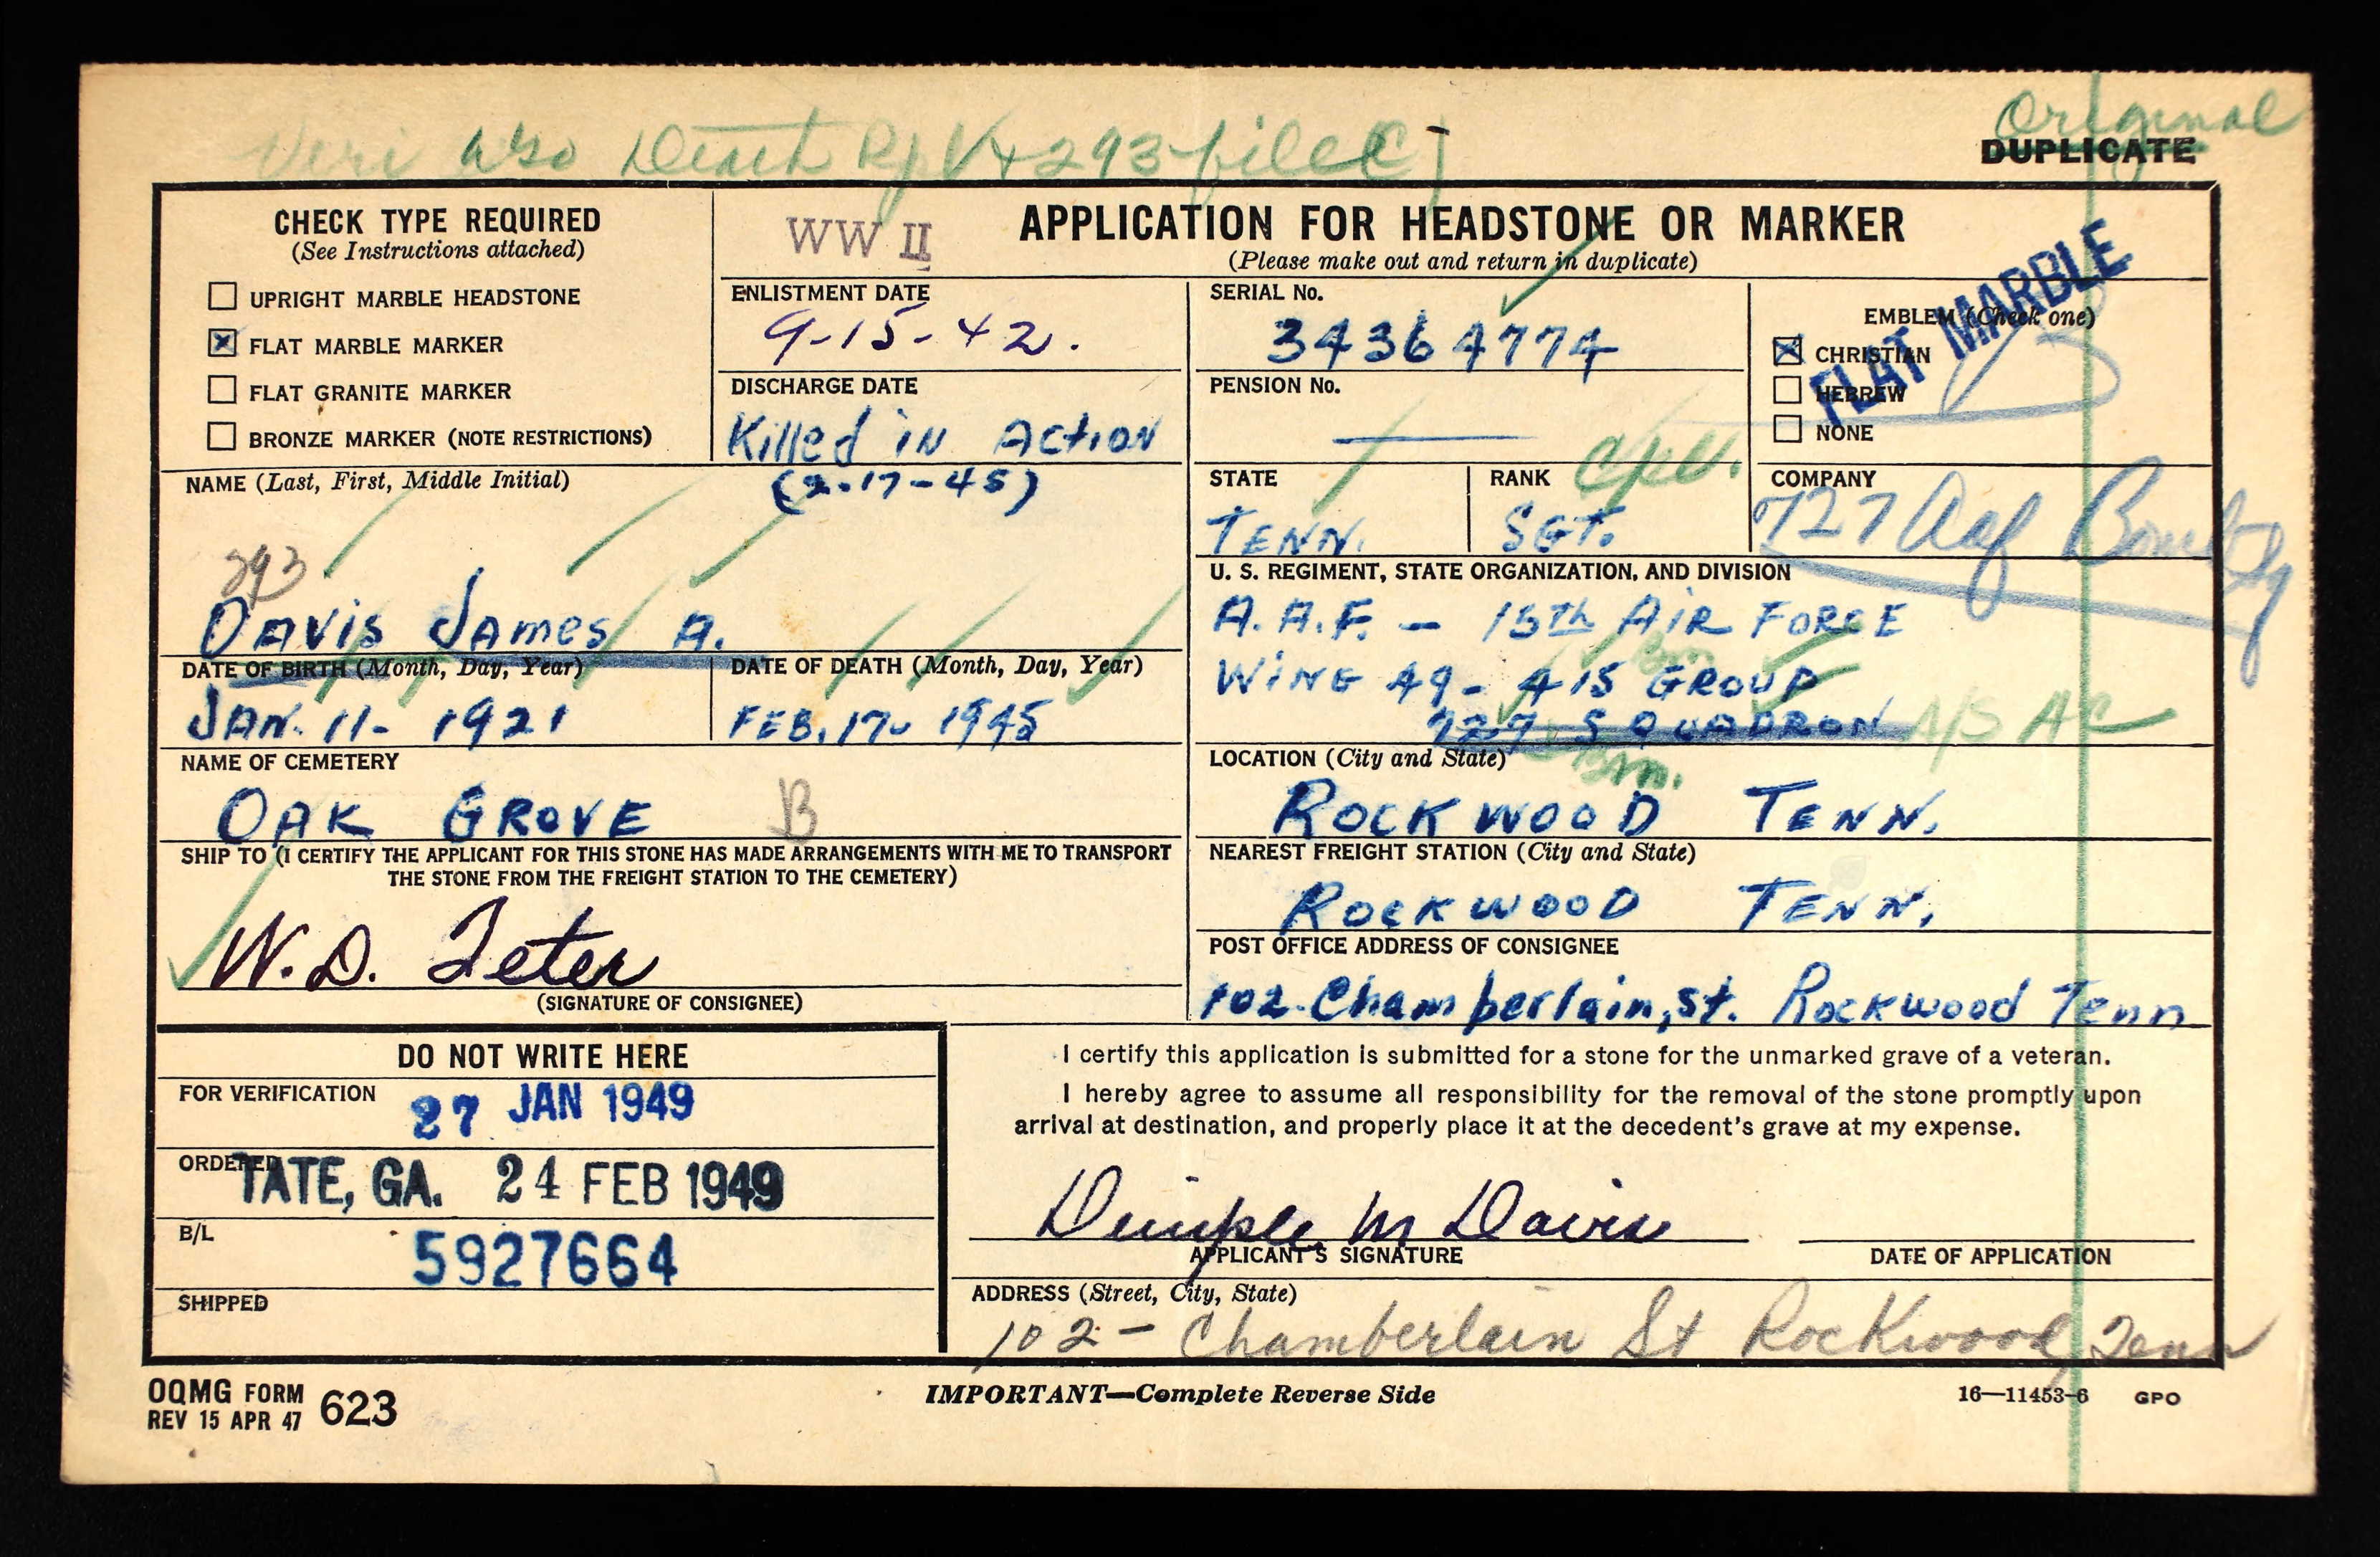 Original
DUPLICATE
Death Rpt 293 file
CHECK TYPE REQUIRED
(See Instructions attached)
UPRIGHT MARBLE HEADSTONE
FLAT MARBLE MARKER
FLAT GRANITE MARKER
BRONZE MARKER (NOTE RESTRICTIONS)
WW II
APPLICATION FOR HEADSTONE OR MARKER
(Please make out and return in duplicate)
ENLISTMENT DATE
9-15-42.
SERIAL No.
34364774
EMBLEM (Check one)
CHRISTIAN
HEBREW
NONE
FLAT MARBLE
DISCHARGE DATE
Killed in Action
(2-17-45)
PENSION No.
NAME (Last, First, Middle Initial)
293
Davis James A.
STATE
TENN.
RANK
Cpl.
SGT.
COMPANY
727 Aaf Bomb
U. S. REGIMENT, STATE ORGANIZATION, AND DIVISION
A.A.F. - 15th AIR FORCE
Bm
WING 49- 415 GROUP
727 SQUADRON A/S AC
Bm.
DATE OF BIRTH (Month, Day, Year)
JAN. 11- 1921
DATE OF DEATH (Month, Day, Year)
FEB. 17- 1945
NAME OF CEMETERY
OAK GROVE B
LOCATION (City and State)
ROCKWOOD TENN.
SHIP TO (I CERTIFY THE APPLICANT FOR THIS STONE HAS MADE ARRANGEMENTS WITH ME TO TRANSPORT
THE STONE FROM THE FREIGHT STATION TO THE CEMETERY)
W. D. Teter
(SIGNATURE OF CONSIGNEE)
NEAREST FREIGHT STATION (City and State)
ROCKWOOD TENN.
POST OFFICE ADDRESS OF CONSIGNEE
102 Chamberlain, St. Rockwood Tenn
DO NOT WRITE HERE
FOR VERIFICATION
27 JAN 1949
ORDERED
TATE, GA. 24 FEB 1949
B/L
5927664
SHIPPED
I certify this application is submitted for a stone for the unmarked grave of a veteran.
I hereby agree to assume all responsibility for the removal of the stone promptly upon
arrival at destination, and properly place it at the decedent's grave at my expense.
Dimple M Davis
APPLICANT'S SIGNATURE
DATE OF APPLICATION
ADDRESS (Street, City, State)
102 - Chamberlain St Rockwood, Tenn
OQMG FORM 623
REV 15 APR 47
IMPORTANT—Complete Reverse Side
16—11453-6 GPO